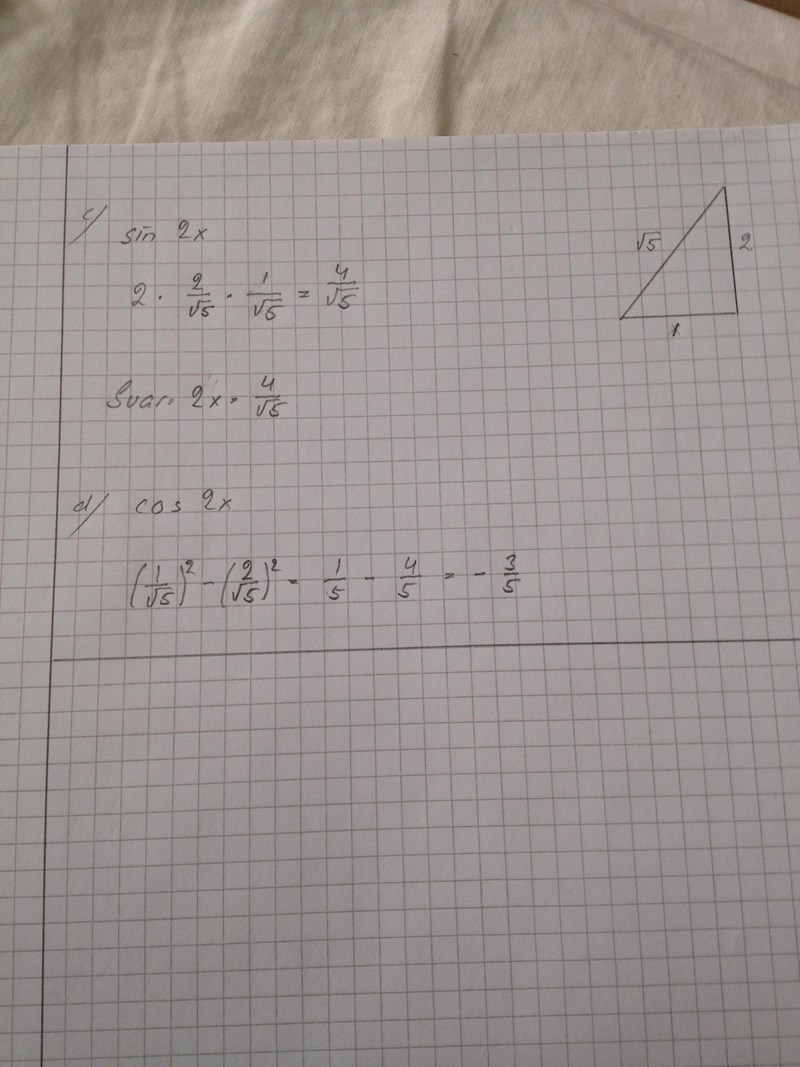 c/ sin 2x
√5 2
2 · 2/√5 · 1/√5 = 4/√5
1
Svar: 2x = 4/√5
d/ cos 2x
(1/√5)² - (2/√5)² = 1/5 - 4/5 = - 3/5